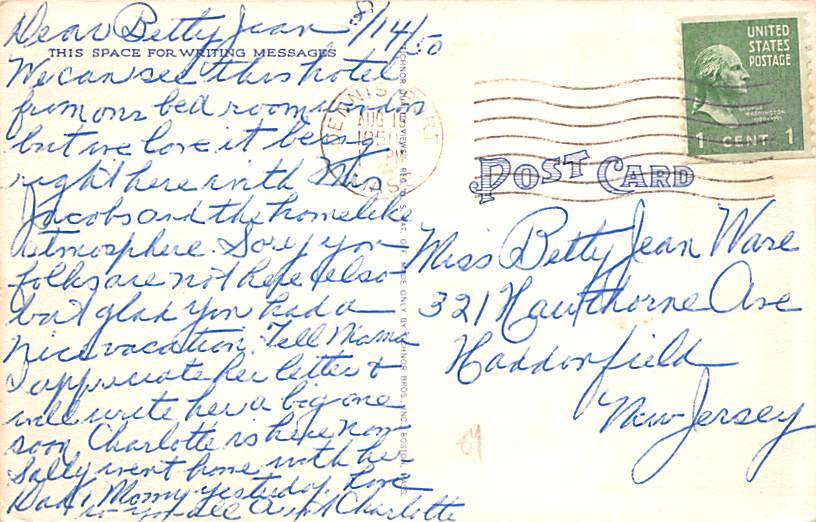 Dear Betty Jean 8/14/50
THIS SPACE FOR WRITING MESSAGES
We can see this hotel
from our bed room window
but we love it being
right here with Mrs
Jacobs and the homelike
atmosphere. Sorry you
folks are not here also
but glad you had a
nice vacation. Tell Mama
I appreciate her letter &
will write her a big one
soon Charlotte is here now
Sally went home with her
Dad & Momy yesterday. Love
to you all Aunt Charlotte
TICHNOR QUALITY VIEWS, REG. U. S. PAT. OFF. MADE ONLY BY TICHNOR BROS., INC., BOSTON, MASS.
DENNIS PORT
AUG 15
MASS
UNITED
STATES
POSTAGE
GEORGE
WASHINGTON
1 CENT 1
POST CARD
Miss Betty Jean Ware
321 Hawthorne Ave
Haddonfield
New Jersey